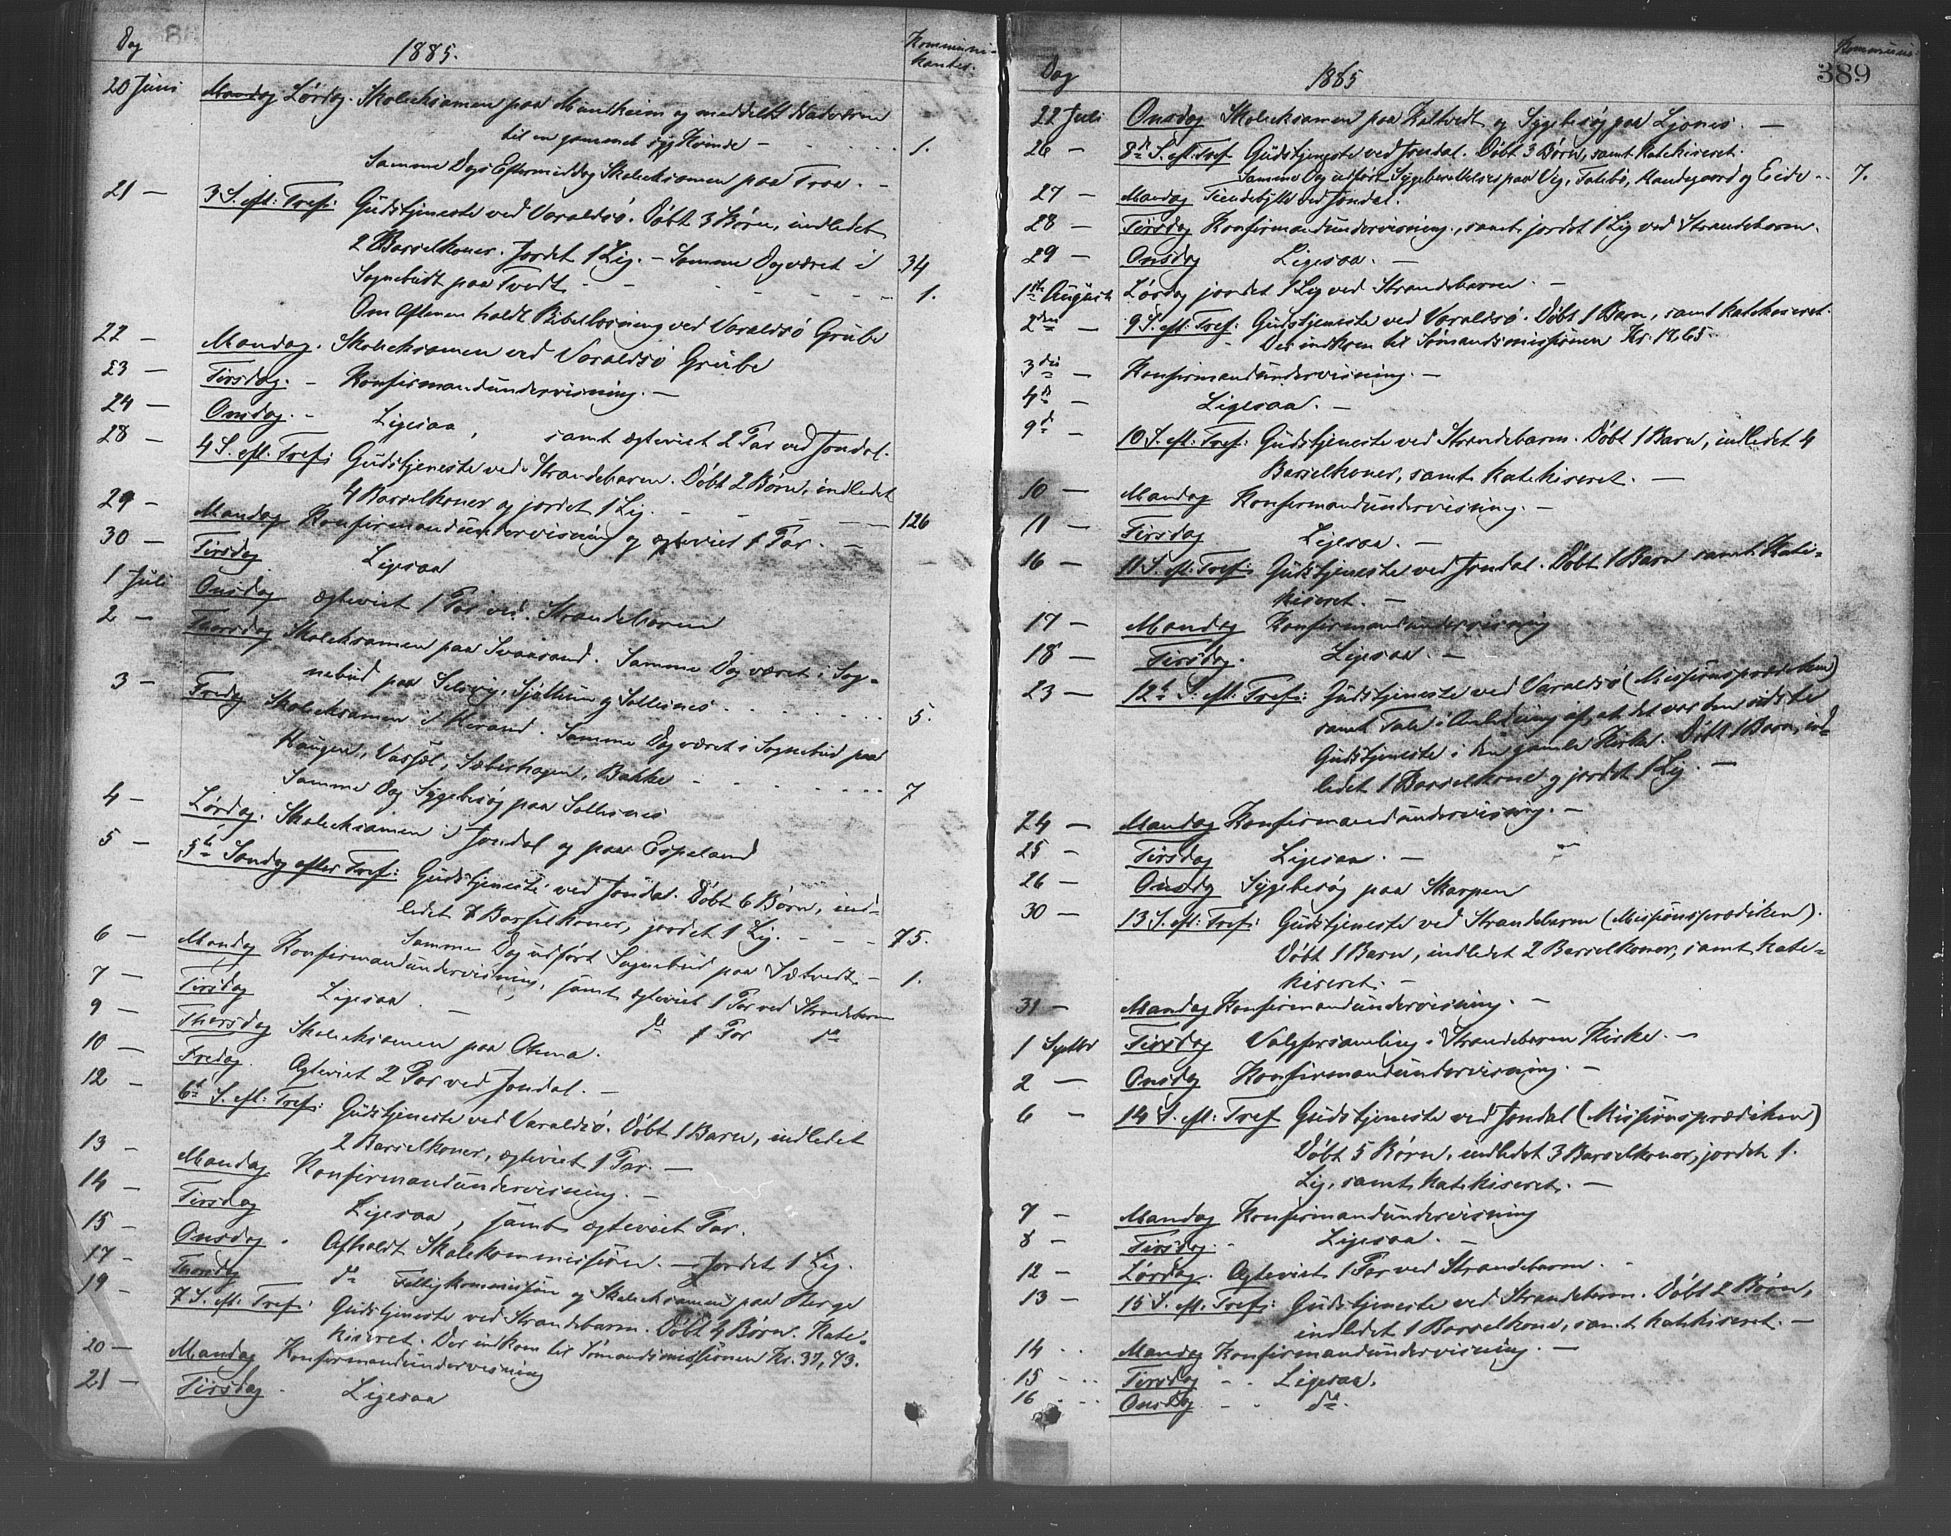 Dag
1885.
Kommuni-
kanter.
20 Juni Mandag Lørdag. Skoleeksamen paa Mundheim og meddelt Nadveren
til en gammel syg Kvinde - 1.
Samme Dags Eftermiddag Skoleeksamen paa Traa. -
21 - 3 S. eft: Tref: Gudstjeneste ved Varaldsø. Døbt 3 Børn, indledet
2 Barselkoner. Jordet 1 Lig. - Samme Dag været i 34
Sognebud paa Tvedt - 1.
Om Aftenen holdt Bibellæsning ved Varaldsø Grube
22 - Mandag. Skoleeksamen ved Varaldsø Grube
23 - Tirsdag. - Konfirmandundervisning. -
24 - Onsdag. - Ligesaa, samt ægteviet 2 Par ved Jondal.
28 - 4 S. eft. Tref: Gudstjeneste ved Strandebarm. Døbt 2 Børn, indledet
4 Barselkoner og jordet 1 Lig. - 126
29 - Mandag Konfirmandundervisning og ægteviet 1 Par. -
30 - Tirsdag Ligesaa
1 Juli Onsdag ægteviet 1 Par ved Strandebarm
2 - Thorsdag Skoleeksamen paa Svaasand. Samme Dag været i Sog-
nebud paa Selsvig, og Solesnes 5.
3 - Fredag Skoleeksamen i Herand. Samme Dag været i Sognebud paa
Haugen, Bakke - 7
Samme Dag Sygebesøg paa Solesnes
4 - Lørdag. Skoleeksamen i Jondal og paa Espeland
5 - 5te Søndag efter Tref: Gudstjeneste ved Jondal. Døbt 6 Børn, ind-
ledet 7 Barselkoner, jordet 1 Lig. - 75.
Samme Dag udført Sognebud paa Sætvedt - 1.
6 - Mandag Konfirmandundervisning, samt ægteviet 1 Par ved Strandebarm
7 - Tirsdag Ligesaa - do 1 Par do
9 - Thorsdag Skoleeksamen paa Omma.
10 - Fredag. Ægteviet 2 Par ved Jondal. -
12 - 6te S. eft: Tref: Gudstjeneste ved Varaldsø. Døbt 1 Barn, indledet
2 Barselkoner, ægteviet 1 Par. -
13 - Mandag Konfirmandundervisning. -
14 - Tirsdag Ligesaa, samt ægteviet Par.
15 - Onsdag. Afholdt Skolekommission. - Jordet 1 Lig.
17 - Thorsdag do Fattigkommission og Skoleeksamen paa Herge
19 - 7 S. eft: Tref: Gudstjeneste ved Strandebarm. Døbt 4 Børn. Kate-
kiseret. Der indkom til Sømandsmissionen Kr. 37,73.
20 - Mandag Konfirmandundervisning
21 - Tirsdag - Ligesaa
389
Dag
1885
Kommuni-
22 Juli Onsdag Skoleeksamen paa og Sygebesøg paa Ljones. -
26 - 8de S. eft: Tref Gudstjeneste ved Jondal. Døbt 3 Børn, samt katekiseret.
Samme Dag udført Sygeberettelser paa Vig, og Eide - 7.
27 - Mandag ved Jondal.
28 - Tirsdag Konfirmandundervisning, samt jordet 1 Lig ved Strandebarm.
29 - Onsdag Ligesaa. -
1ste August Lørdag jordet 1 Lig ved Strandebarm -
2den - 9 S. eft: Tref: Gudstjeneste ved Varaldsø. Døbt 1 Barn, samt katekiseret.
- Der indkom til Sømandsmissionen Kr. 17,65.
3die - Konfirmandundervisning. -
4de - Ligesaa. -
9de - 10 S. eft: Tref: Gudstjeneste ved Strandebarm. Døbt 1 Barn, indledet 4
Barselkoner, samt katekiseret. -
10 - Mandag Konfirmandundervisning. -
11 - Tirsdag Ligesaa. -
16 - 11 S. eft: Tref: Gudstjeneste ved Jondal. Døbt 1 Barn samt Kate-
kiseret. -
17 - Mandag Konfirmandundervisning
18 - Tirsdag. Ligesaa. -
23 - 12te S. eft: Tref: Gudstjeneste ved Varaldsø (Missionsprædiken)
samt Tale i Anledning af, at det var den sidste
Gudstjeneste i den gamle Kirke. Døbt 1 Barn, ind-
ledet 1 Barselkone og jordet 1 Lig. -
24 - Mandag Konfirmandundervisning. -
25 - Tirsdag Ligesaa. -
26 - Onsdag Sygebesøg paa Skarpen
30 - 13 S. eft: Tref: Gudstjeneste ved Strandebarm (Missionsprædiken).
Døbt 1 Barn, indledet 2 Barselkoner, samt kate-
kiseret. -
31 - Mandag Konfirmandundervisning. -
1 Septbr Tirsdag Valgforsamling i Strandebarm Kirke. -
2 - Onsdag Konfirmandundervisning. -
6 - 14 S. eft: Tref Gudstjeneste ved Jondal (Missionsprædiken)
Døbt 5 Børn, indledet 3 Barselkoner, jordet 1.
Lig, samt katekiseret. -
7 - Mandag Konfirmandundervisning
8 - Tirsdag. - Ligesaa. -
12 - Lørdag. Ægteviet 1 Par ved Strandebarm. -
13 - 15 S. eft. Tref: Gudstjeneste ved Strandebarm. Døbt 2 Børn,
indledet 1 Barselkone, samt katekiseret. -
14 - Mandag Konfirmandundervisning. -
15 - Tirsdag - Ligesaa.
16 - Onsdag - do.